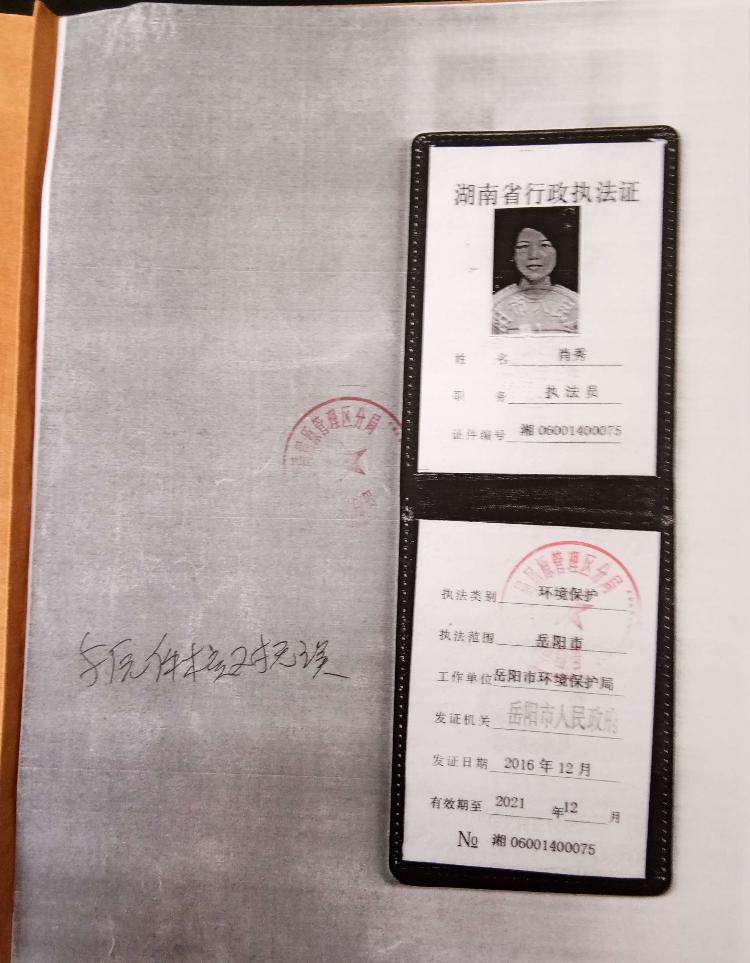 湖南省行政执法证
姓 名 肖秀
职 务 执法员
证件编号 湘 06001400075
原管理区分局
执法类别 环境保护
屈原管理区分局
执法范围 岳阳市
工作单位 岳阳市环境保护局
发证机关 岳阳市人民政府
发证日期 2016 年 12 月
有效期至 2021 年 12 月
№ 湘 06001400075
与原件核对无误